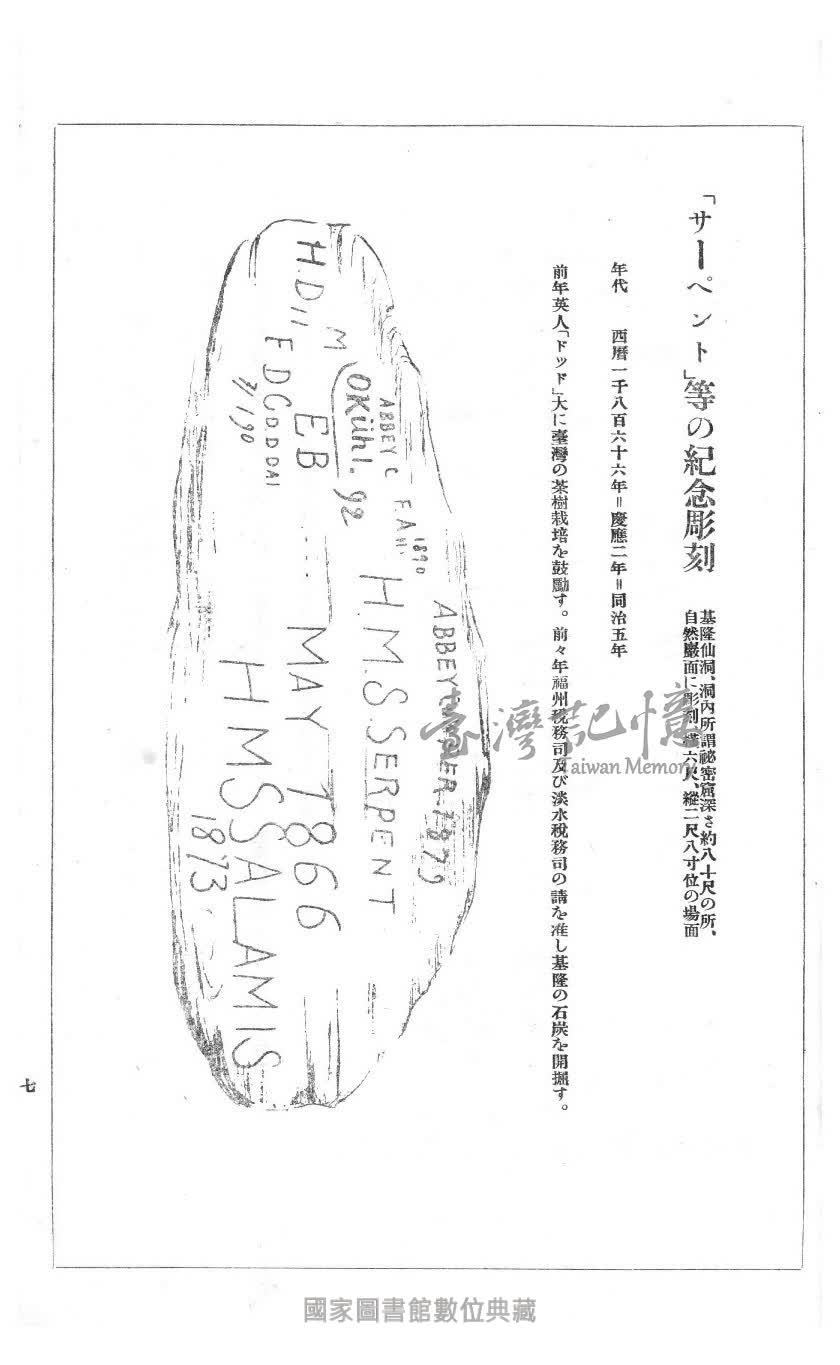 「サーペント」等の紀念彫刻
基隆仙洞、洞内所謂祕密窟深さ約八十尺の所、
自然巖面に彫刻、橫六尺、縱二尺八寸位の場面
年代 西曆一千八百六十六年=慶應二年=同治五年
前年英人「ドッド」大に臺灣の茶樹栽培を鼓勵す。前々年福州稅務司及び淡水稅務司の請を准し基隆の石炭を開掘す。
ABBEY 1879
1890
H.M.S.SERPENT
ABBEY C F.A
OKühl. 92
M
EB
MAY 1866
H.D
F DGDDDAI
7/190
HMSSALAMIS
1873
臺灣記憶
Taiwan Memory
七
國家圖書館數位典藏